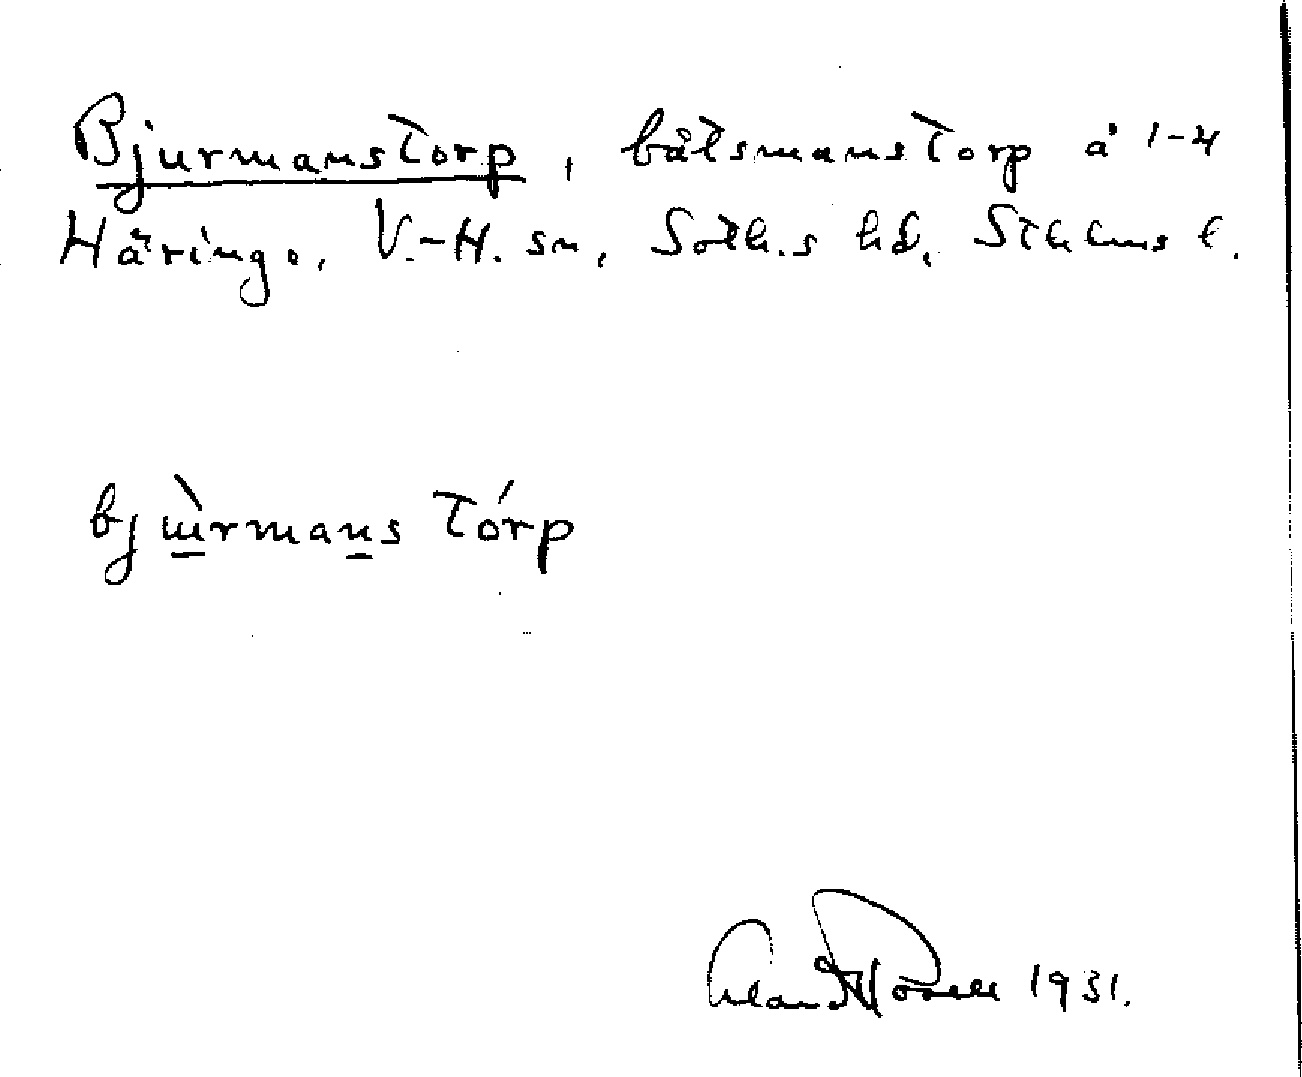 Bjurmanstorp, båtsmanstorp å 1-4
Häringe, V.-H. sn, Soth.s hd, Sthlms l.
bjùrmans tórp
1931.